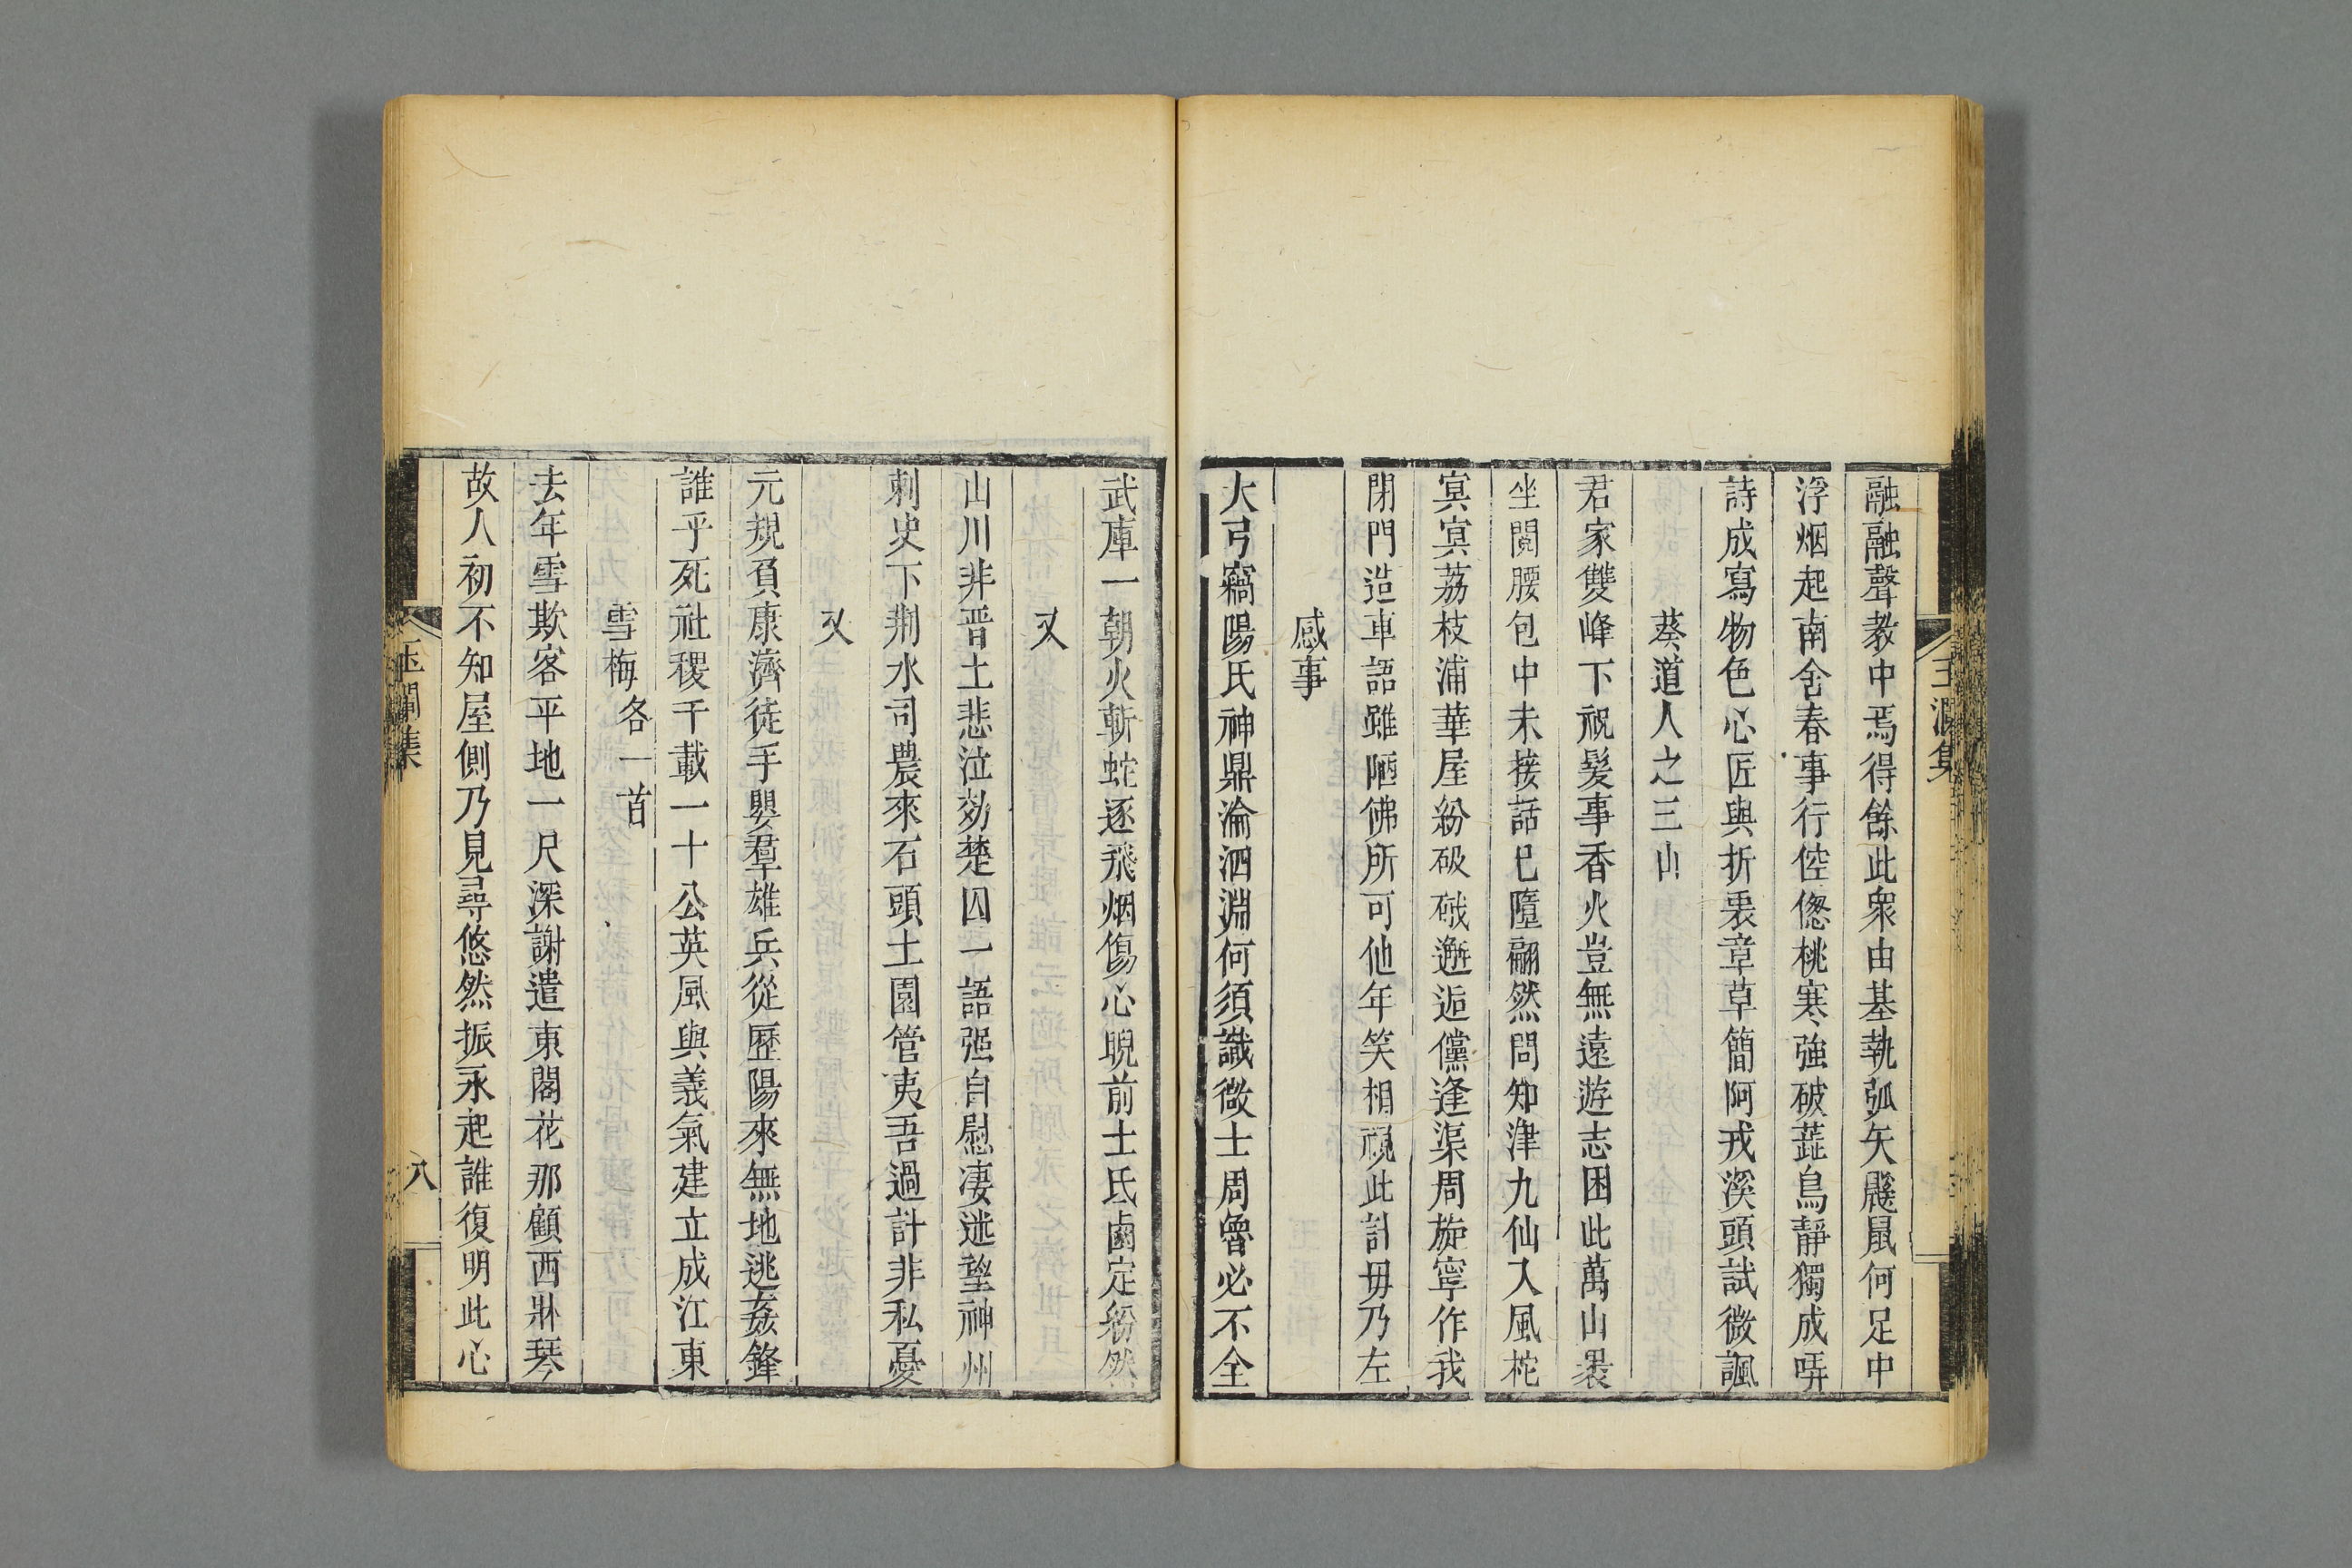 玉澗集
融融聲教中焉得餘此衆由基執弧矢鼷鼠何足中
浮烟起南舍春事行倥偬桃寒強破蕋鳥靜獨成哢
詩成寫物色心匠與折衷章草簡阿戎溪頭試微諷
葵道人之三山
君家雙峰下祝髮事香火豈無遠遊志困此萬山裹
坐閱腰包中未接話已隨翩然問知津九仙入風柁
寞寞荔枝浦華屋紛硪邂逅儻逢渠周旋寧作我
閉門造車語雖陋佛所可他年笑相視此計毋乃左
感事
大弓竊陽氏神鼎淪泗淵何須識微士周魯必不全
武庫一朝火斬蛇逐飛烟傷心睨前士氏鹵定紛然
又
山川非晉土悲泣効楚囚一語强自慰凄迷望神州
刺史下荆水司農來石頭土園管夷吾過計非私憂
又
元規負康濟徒手嬰羣雄兵從歷陽來無地逃姦鋒
誰乎死社稷千載一十公英風與義氣建立成江東
雪梅各一首
去年雪欺客平地一尺深謝遣東閣花那顧西牀琴
故人初不知屋側乃見尋悠然振永起誰復明此心
玉澗集
八